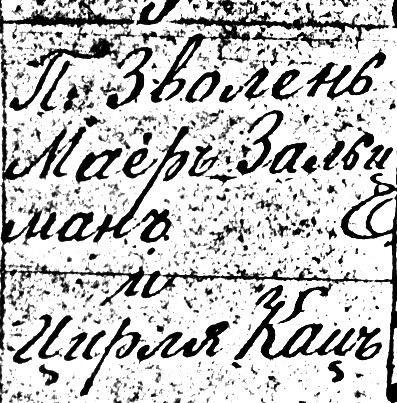 П. Зволень
Маеръ-Заль
манъ
и
Цирля Кацъ